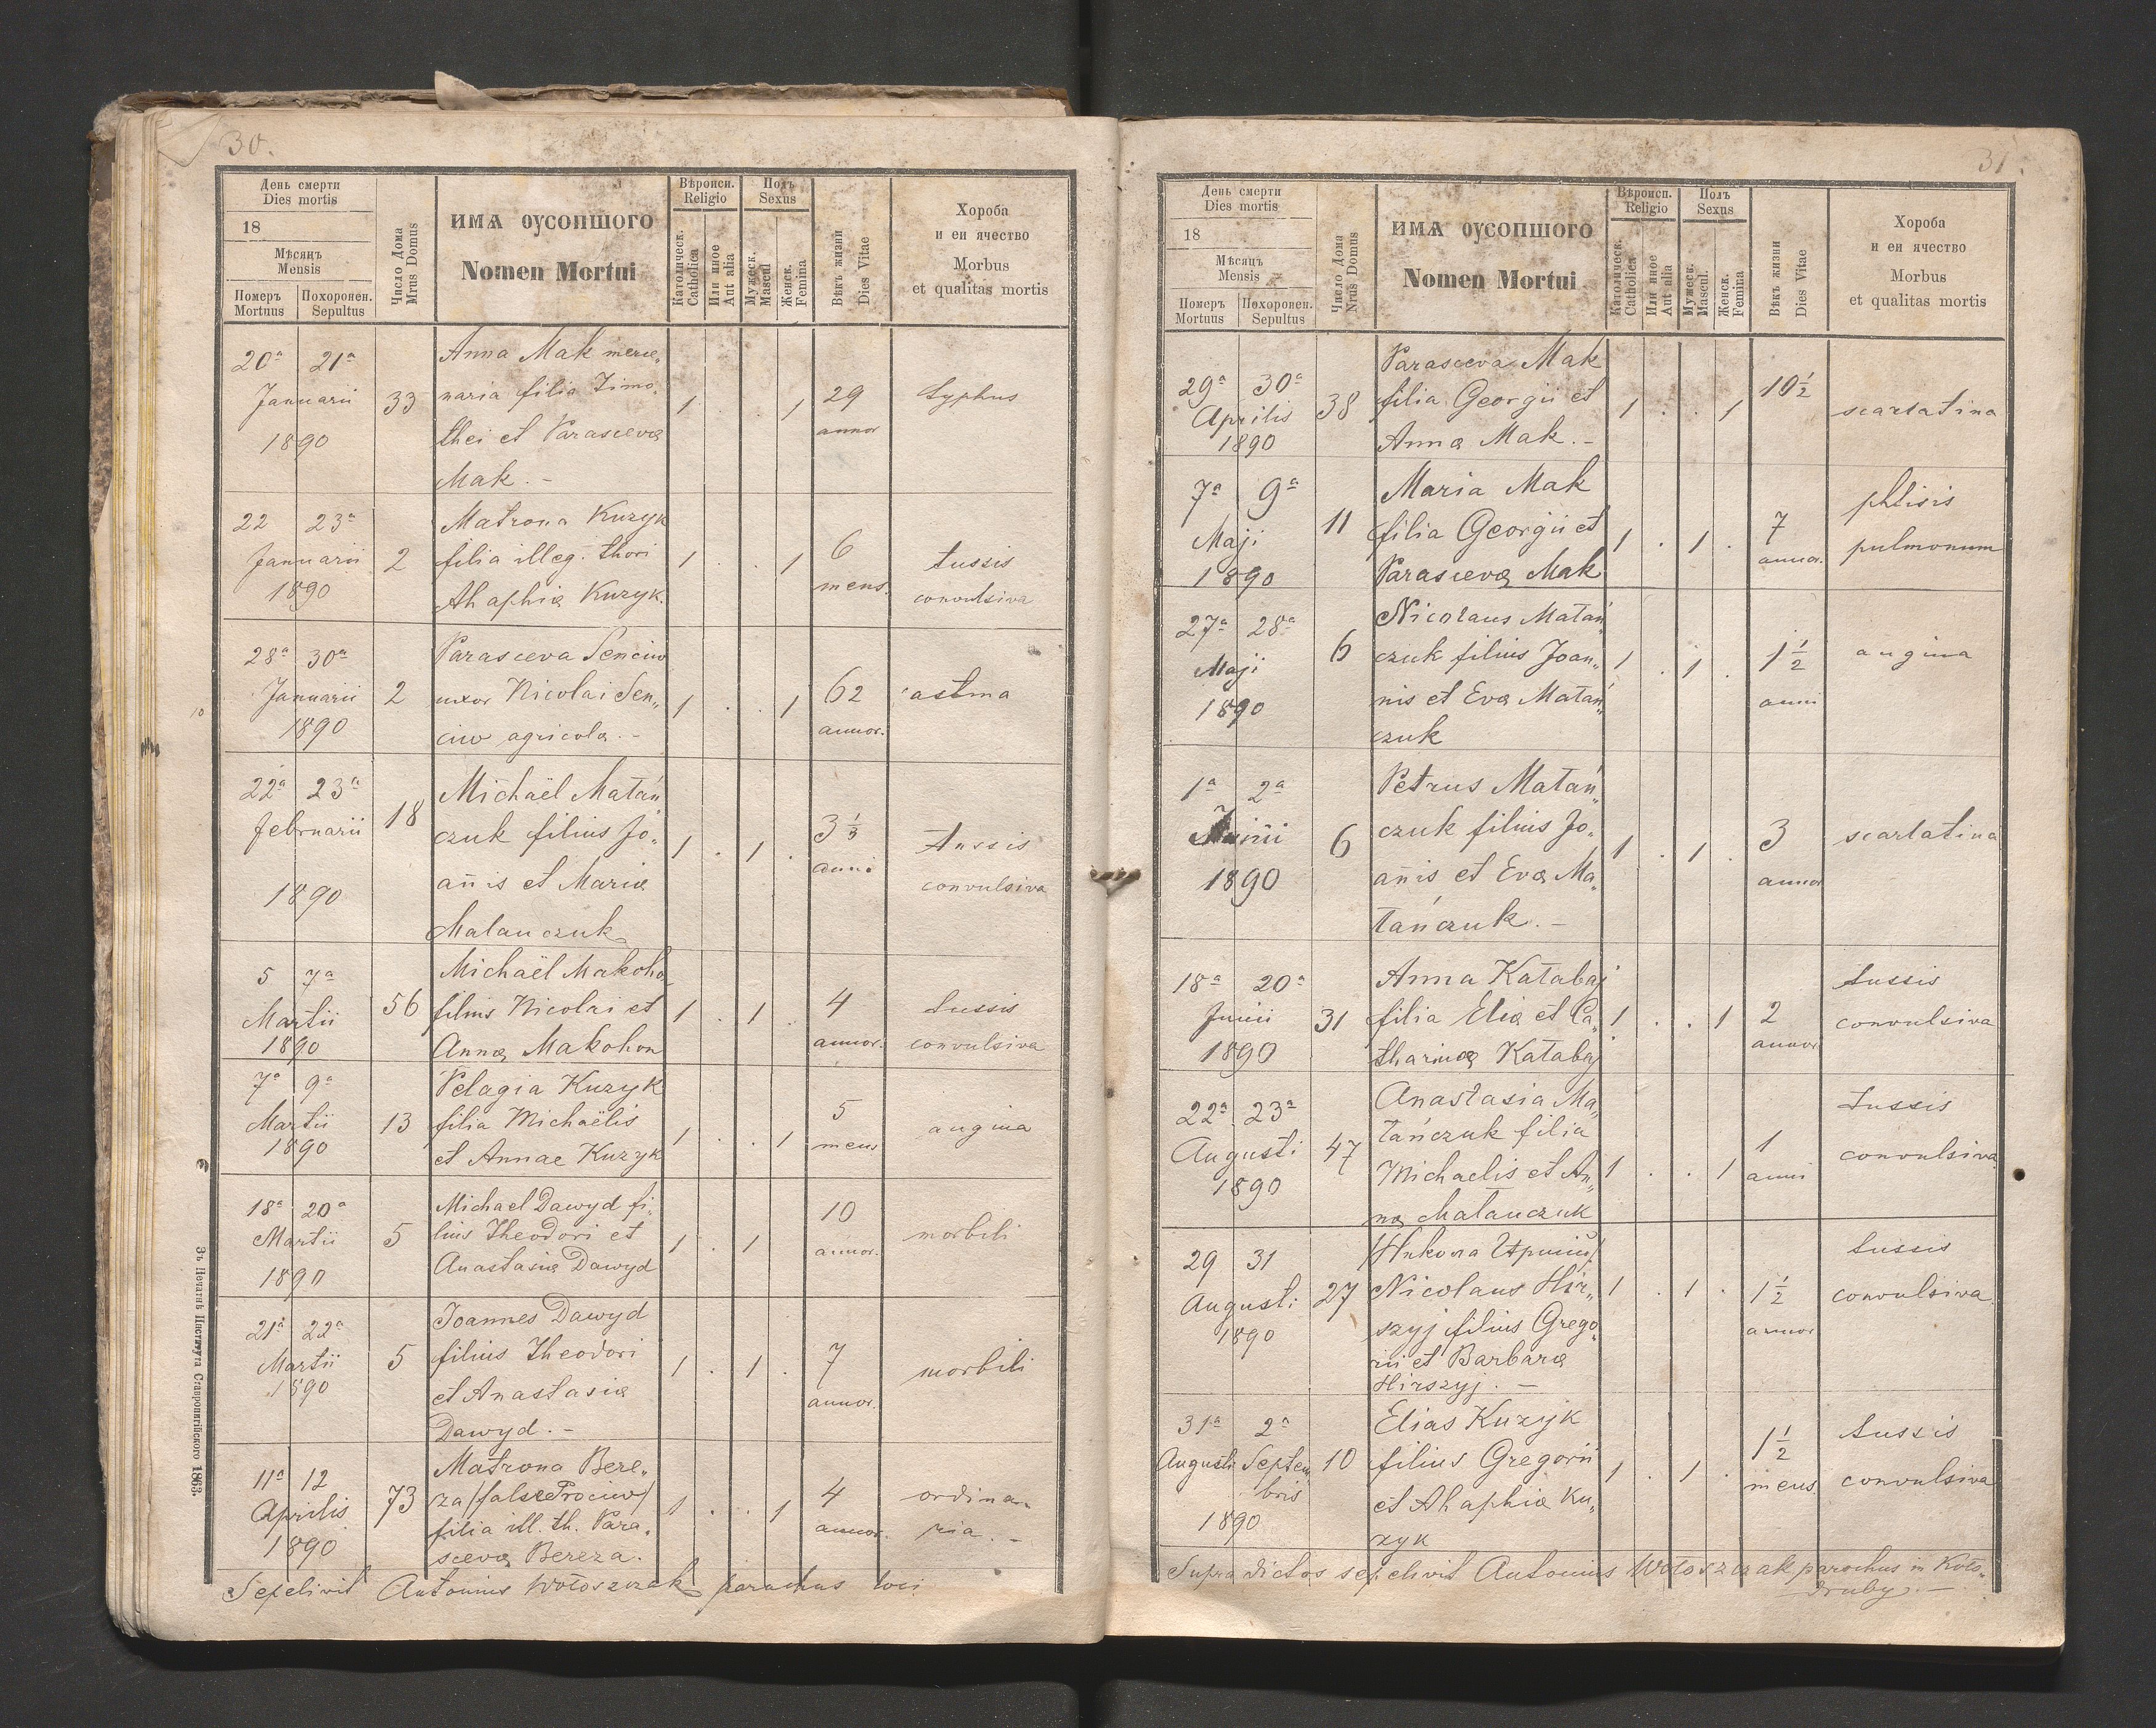 30.
День смерти
Dies mortis
18
Мѣсяцъ
Mensis
Померъ
Mortuus
Похоронен.
Sepultus
Число Дома
Mrus Domus
ИМѦ ОУСОПШОГО
Nomen Mortui
Вѣроисп.
Religio
Католическ.
Catholica
Или иное
Aut alia
Полъ
Sexus
Мужеск.
Mascul
Женск.
Femina
Вѣкъ жизни
Dies Vitae
Хороба
и еи ячество
Morbus
et qualitas mortis
20ª 21ª
Januarii
1890
33
Anna Mak merce„
naria filia Timo„
thei et Parascevæ
Mak. –
1 . . 1
29
annor
typhus
22 23ª
Januarii
1890
2
Matrona Kuzyk
filia illeg. thori
Ahaphiæ Kuzyk.
1 . . 1
6
mens.
tussis
convulsiva
28ª 30ª
Januarii
1890
2
Parasceva Senciw
uxor Nicolai Sen„
ciw agricolæ. –
1 . . 1
62
annor.
astma
22ª 23ª
februarii
1890
18
Michaël Matań„
czuk filius Jo„
an̄is et Mariæ
Malanczuk
1 . 1 .
3 1/3
anni
Tussis
convulsiva
5 7ª
Martii
1890
56
Michaël Makoho
filius Nicolai et
Annæ Makohon
1 . 1 .
4
annor.
tussis
convulsiva
7ª 9ª
Martii
1890
13
Pelagia Kuzyk
filia Michaëlis
et Annae Kuzyk
1 . . 1
5
mens
angina
18ª 20ª
Martii
1890
5
Michael Dawyd fi„
lius Theodori et
Anastasiæ Dawyd
1 . 1
10
annor.
morbili
21ª 22ª
Martii
1890
5
Joannes Dawyd
filius Theodori
et Anastasiæ
Dawyd. –
1 . 1 .
7
annor.
morbili
11ª 12
Aprilis
1890
73
Matrona Bere„
za /false Prociw/
filia ill. th. Para„
scevæ Bereza.
1 . . 1
4
annor.
ordina„
ria. –
Sepelivit Antonius Wołoszczak parochus loci
Зъ Печатнѣ Института Ставропигійского 1863.
31.
День смерти
Dies mortis
18
Мѣсяцъ
Mensis
Померъ
Mortuus
Похоронен.
Sepultus
Число Дома
Nrus Domus
ИМѦ ОУСОПШОГО
Nomen Mortui
Вѣроисп.
Religio
Католическ.
Catholica
Или иное
Aut alia
Полъ
Sexus
Мужеск.
Mascul.
Женск.
Femina
Вѣкъ жизни
Dies Vitae
Хороба
и еи ячество
Morbus
et qualitas mortis
29ª 30ª
Aprilis
1890
38
Parasceva Mak
filia Georgii et
Annæ Mak. –
1 . . 1
10 1/2
scarlatina
7ª 9ª
Maji
1890
11
Maria Mak
filia Georgii et
Parascevæ Mak
1 . 1 .
7
annor.
phtisis
pulmonum
27ª 28ª
Maji
1890
6
Nicolaus Matań„
czuk filius Joan„
nis et Evæ Matań„
czuk
1 . 1 .
1 1/2
anni
angina
1ª 2ª
Junii
1890
6
Petrus Matań„
czuk filius Jo„
an̄is et Evæ Ma„
tańczuk. –
1 . 1 .
3
annor
scarlatina
18ª 20ª
Junii
1890
31
Anna Katabaj
filia Eliæ et Ca„
tharinæ Katabaj
1 . . 1
2
annor.
tussis
convulsiva
22ª 23ª
Augusti
1890
47
Anastasia Ma„
tańczuk filia
Michaelis et An„
næ Malanczuk
1 . . 1
1
anni
Tussis
convulsiva
29 31
Augusti
1890
27
Nicolaus Hir„
szyj filius Grego„
rii et Barbaræ
Hirszyj. –
1 . 1 .
1 1/2
annor
tussis
convulsiva.
31ª 2ª
Augusti Septem
bris
1890
10
Elias Kuzyk
filius Gregorii
et Ahaphiæ Ku„
zyk
1 . 1 .
1 1/2
mens
tussis
convulsiva
Supra dictos sepelivit Antonius Wołoszczak parochus in Koło„
druby. –